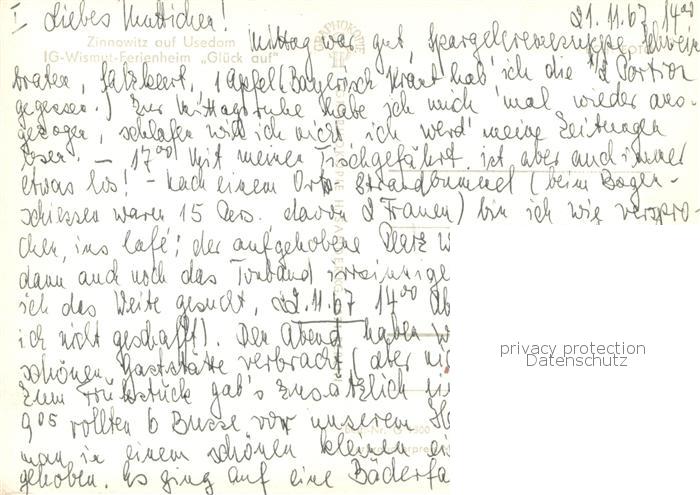 I Liebes Muttichen! 21.11.67 14 00
Zinnowitz auf Usedom
IG-Wismut-Ferienheim „Glück auf"
Mittag war gut, Spargelcremesuppe, Schwein
braten, Salzkart., 1 Apfel (Bayerisch Kraut hab' ich die 1/2 Portion
gegessen.) Zur Mittagsruhe habe ich mich 'mal wieder aus-
gezogen, schlafen will ich nicht, ich werd' meine Zeitungen
lesen. – 17 00 mit meinen Tischgefährt. ist aber auch immer
etwas los! – Nach einem Orts- Strandbummel (beim Bogen-
schiessen waren 15 Pers. davon 2 Frauen) bin ich wie verspro-
chen, ins Café; der aufgehobene Platz w
dann auch noch das Tonband
ich das Weite gesucht, 22.11.67 14 00
ich nicht geschafft). Den Abend haben w
schönen Gaststätte verbracht (aber ni
Zum Frühstück gab's zusätzlich
9 05 rollten 6 Busse vor unserem
man in einem schönen kleinen
gehoben. Es ging auf eine Bäderfa
privacy protection
Datenschutz